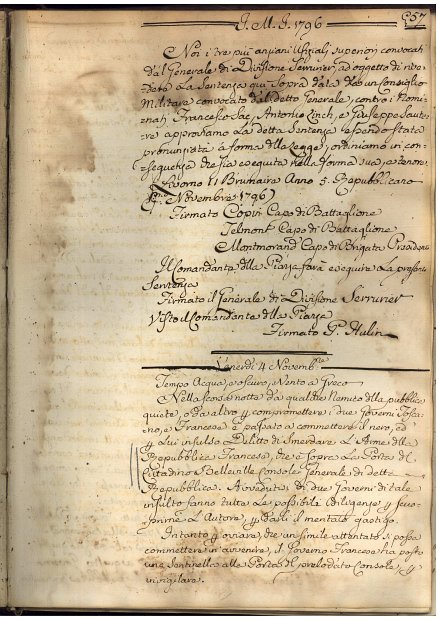 G. M. G. 1796
657
Noi i tre più anziani Ufiziali superiori convocati
dal Generale di Divisione Serrurier, ad oggetto di
la Sentenza qui sopra data da un Consiglio
Militare convocato dal detto Generale, contro i Nomi-
nati Francesco Antonio e Giuseppe
approviamo la detta Sentenza essendo stata
pronunziata a forma della Legge, ordiniamo in con-
seguenza che sia eseguita nella forma sua, e tenore.
Livorno 11 Brumaire Anno 5. Repubblicano
Novembre 1796)
Firmato Copin Capo di Battaglione
Telmont Capo di Battaglione
Montmorand Capo di Brigata
Il Comandante della Piazza farà eseguire la presente
Sentenza
Firmato il Generale di Divisione Serrurier
Visto il Comandante della Piazza
Firmato G. Hulin
Venerdì 4 Novembre
Tempo Acqua, e oscuro, Vento a Greco
Nella scorsa notte da qualche Nemico della pubblica
quiete, o da altro p compromettere i due Governi Tosca-
no, e Francese è passato a commettere il nero, ed
il più insulso Delitto di smerdare l'Arme della
Repubblica Francese, che è sopra la Porta del
Cittadino Belleville Console Generale di Detta
Repubblica. Avveduti i due Governi di tale
insulto fanno tutte le possibili diligenze p
l'Autore, e darli il meritato gastigo.
Intanto p ovviare, che un simile attentato si possa
commettere in avvenire, il Governo Francese ha posto
una Sentinella alla Porta del prelodato Console p
invigilare.